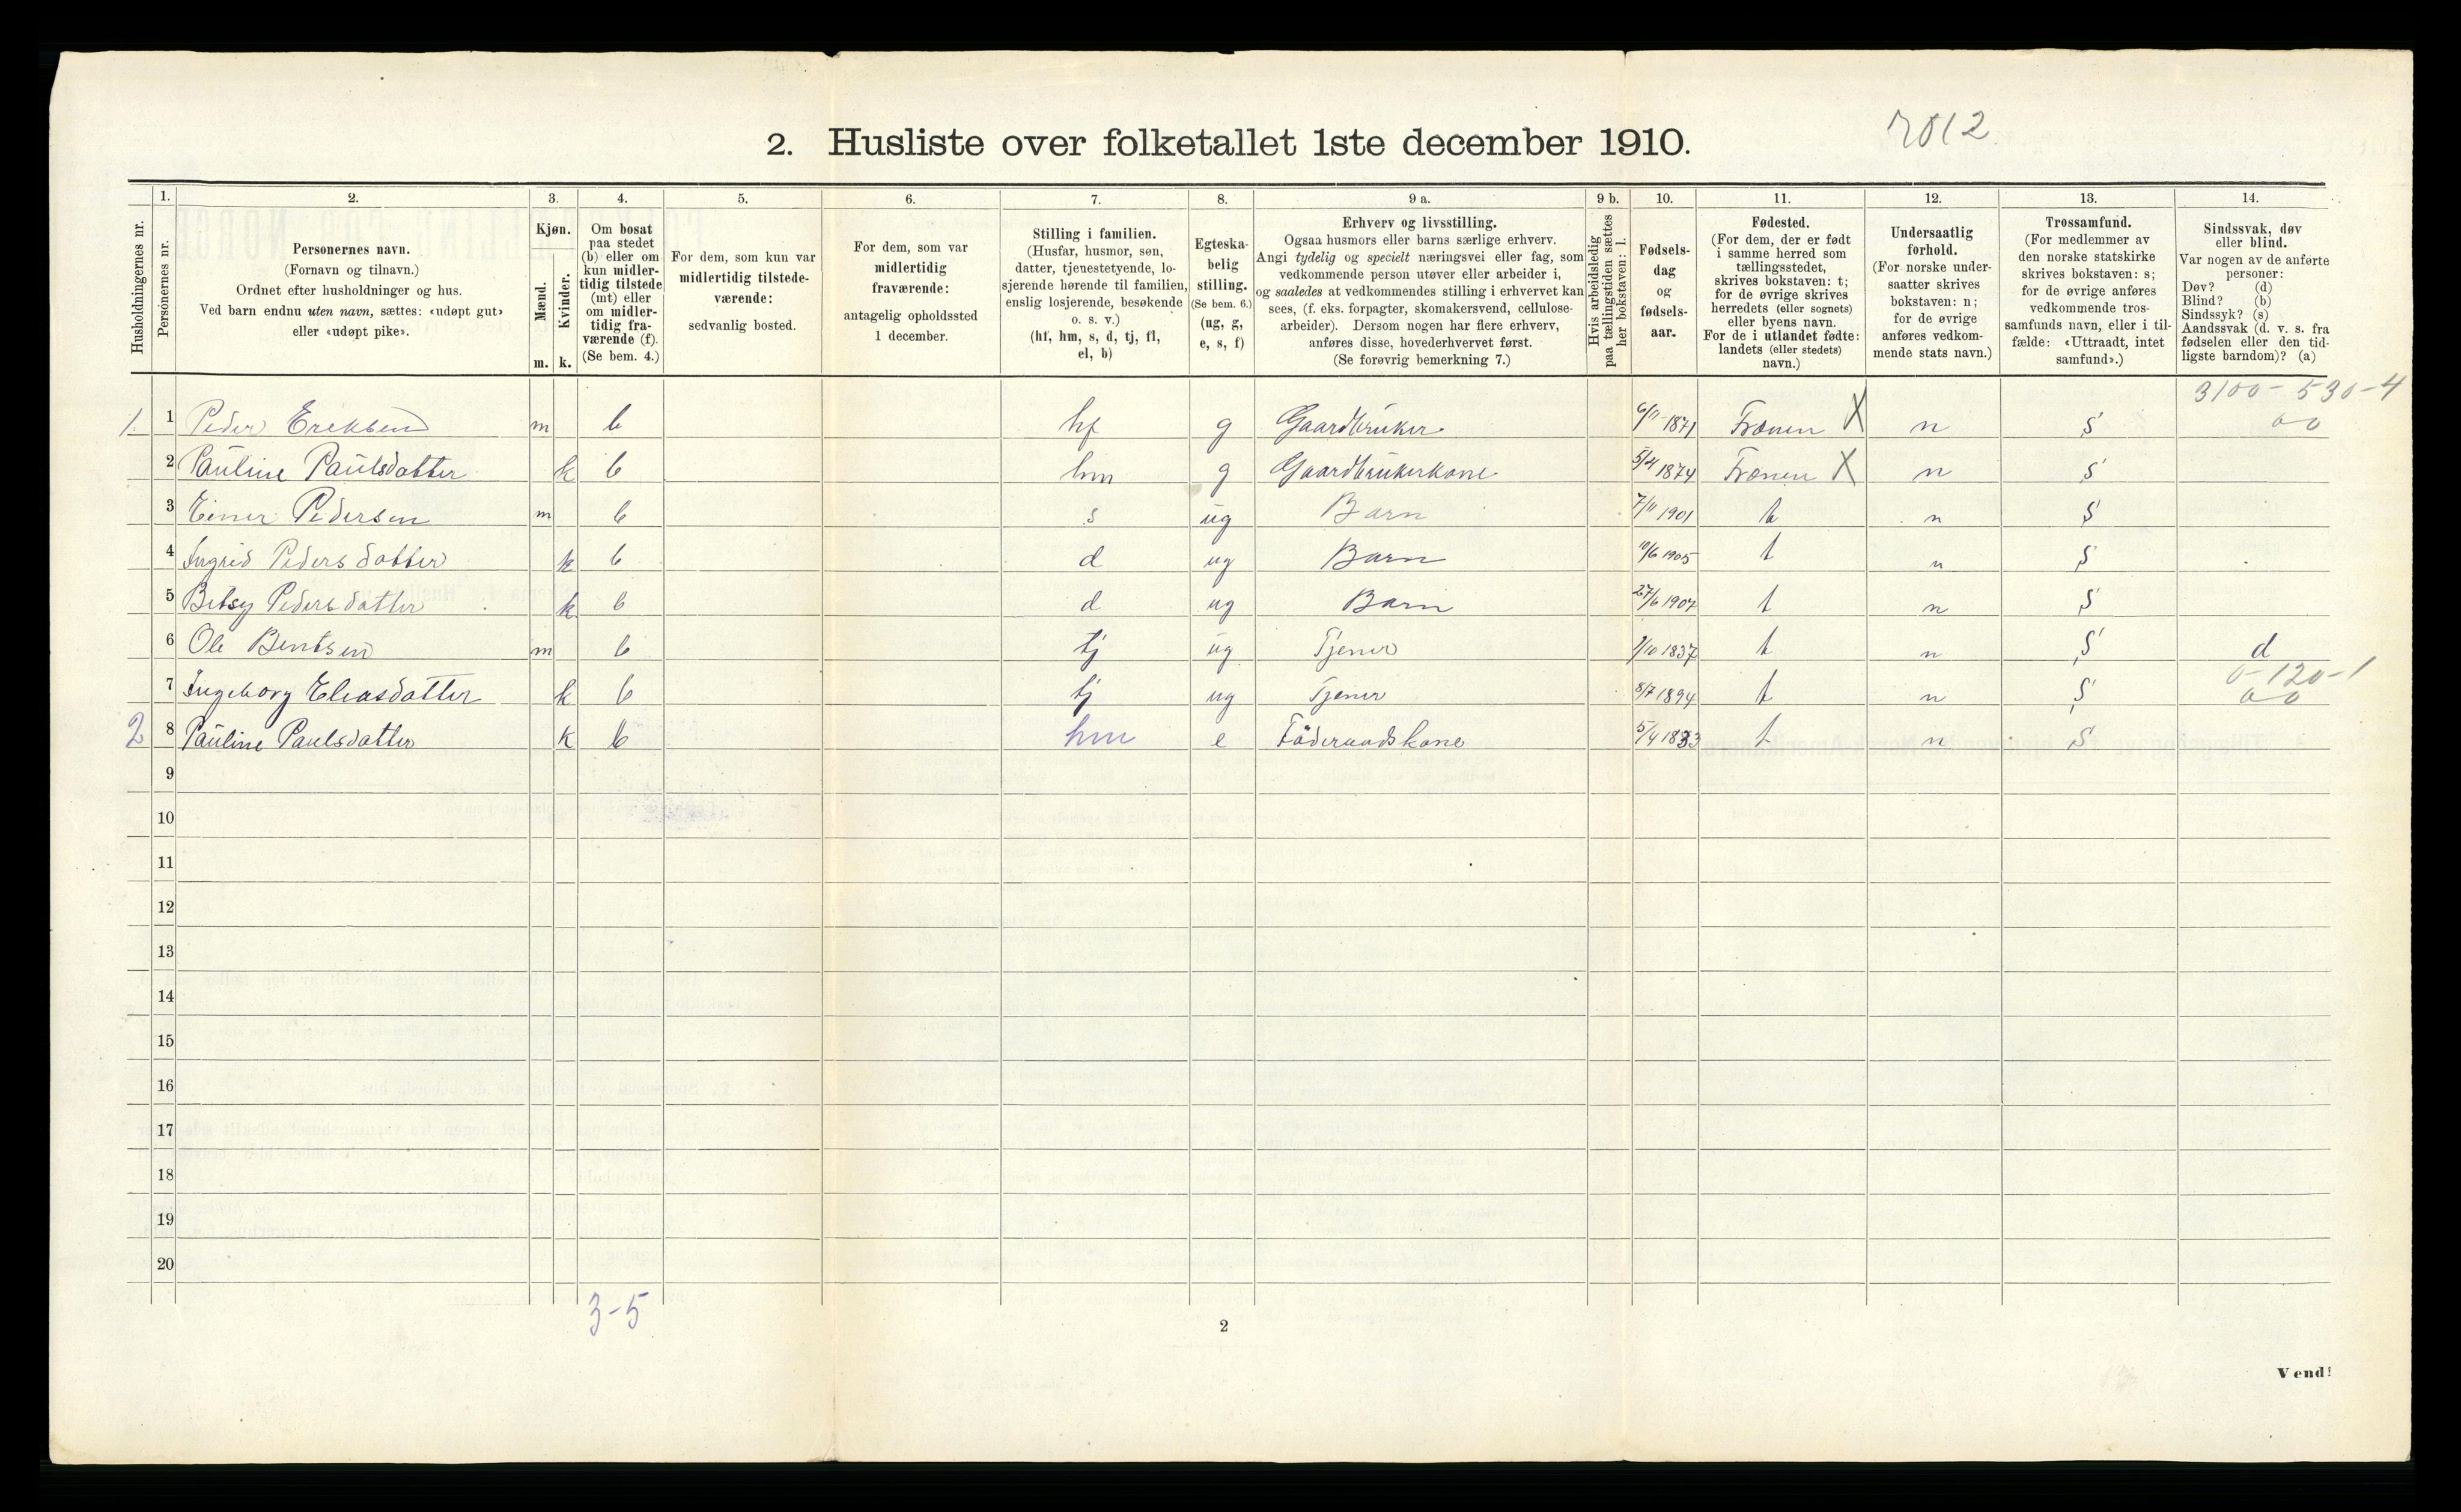 2. Husliste over folketallet 1ste december 1910.
Husholdningernes nr.
1.
Personernes nr.
2.
Personernes navn.
(Fornavn og tilnavn.)
Ordnet efter husholdninger og hus.
Ved barn endnu uten navn, sættes: «udøpt gut»
eller «udøpt pike».
3.
Kjøn.
Mænd.
Kvinder.
m. k.
4.
Om bosat
paa stedet
(b) eller om
kun midler-
tidig tilstede
(mt) eller
om midler-
tidig fra-
værende (f).
(Se bem. 4.)
5.
For dem, som kun var
midlertidig tilstede-
værende:
sedvanlig bosted.
6.
For dem, som var
midlertidig
fraværende:
antagelig opholdssted
1 december.
7.
Stilling i familien.
(Husfar, husmor, søn,
datter, tjenestetyende, lo-
sjerende hørende til familien,
enslig losjerende, besøkende
o. s. v.)
(hf, hm, s, d, tj, fl,
el, b)
8.
Egteska-
belig
stilling.
(Se bem. 6.)
(ug, g,
e, s, f)
9 a.
Erhverv og livsstilling.
Ogsaa husmors eller barns særlige erhverv.
Angi tydelig og specielt næringsvei eller fag, som
vedkommende person utøver eller arbeider i,
og saaledes at vedkommendes stilling i erhvervet kan
sees, (f. eks. forpagter, skomakersvend, cellulose-
arbeider). Dersom nogen har flere erhverv,
anføres disse, hovederhvervet først.
(Se forøvrig bemerkning 7.)
9 b.
Hvis arbeidsledig
paa tællingstiden sættes
her bokstaven: l.
10.
Fødsels-
dag
og
fødsels-
aar.
11.
Fødested.
(For dem, der er født
i samme herred som
tællingsstedet,
skrives bokstaven: t;
for de øvrige skrives
herredets (eller sognets)
eller byens navn.
For de i utlandet fødte:
landets (eller stedets)
navn.)
12.
Undersaatlig
forhold.
(For norske under-
saatter skrives
bokstaven: n;
for de øvrige
anføres vedkom-
mende stats navn.)
13.
Trossamfund.
(For medlemmer av
den norske statskirke
skrives bokstaven: s;
for de øvrige anføres
vedkommende tros-
samfunds navn, eller i til-
fælde: «Uttraadt, intet
samfund».)
14.
Sindssvak, døv
eller blind.
Var nogen av de anførte
personer:
Døv? (d)
Blind? (b)
Sindssyk? (s)
Aandssvak (d. v. s. fra
fødselen eller den tid-
ligste barndom)? (a)
3100-530-4
1. 1 Peder Eriksen m b hf g Gaardbruker 6/11 1871 Frænen X n s 00
2 Pauline Paulsdatter k b hm g Gaardbrukerkone 5/4 1874 Frænen X n s
3 Einer Pedersen m b s ug Barn 7/11 1901 t n s
4 Ingrid Pedersdatter k b d ug Barn 10/6 1905 t n s
5 Betsy Pedersdatter k b d ug Barn 27/6 1907 t n s
6 Ole Bentsen m b tj ug Tjener 1/10 1837 t n s d
0-120-1
7 Ingeborg Eleasdatter k b tj ug Tjener 8/7 1894 t n s 00
2 8 Pauline Paulsdatter k b hm e Föderaadskone 5/4 1833 t n s
9
10
11
12
13
14
15
16
17
18
19
20
3-5
2
Vend!